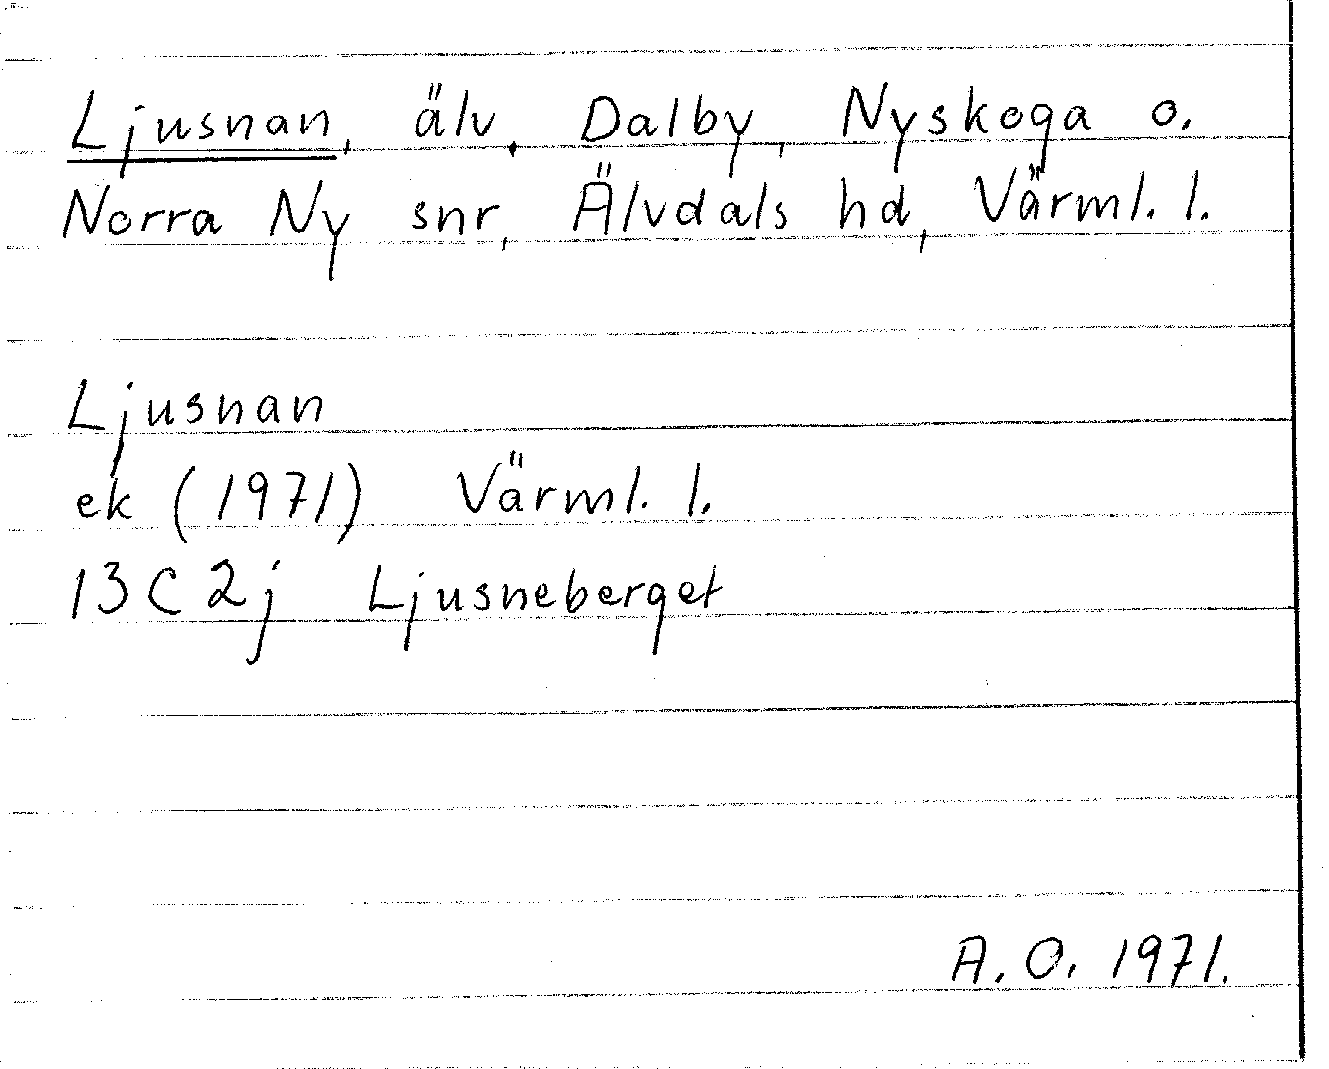 Ljusnan, älv, Dalby, Nyskoga o.
Norra Ny snr, Älvdals hd, Värml. l.
Ljusnan
ek (1971) Värml. l.
13C 2j Ljusneberget
A. O. 1971.